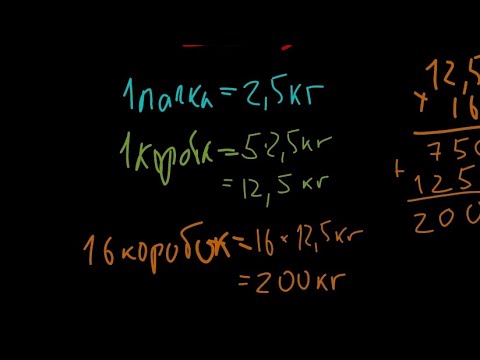 1пачка=2,5кг
1коробк=52,5кг
=12,5кг
16коробок=16×12,5кг
=200кг
12,5
×16
750
+125
200